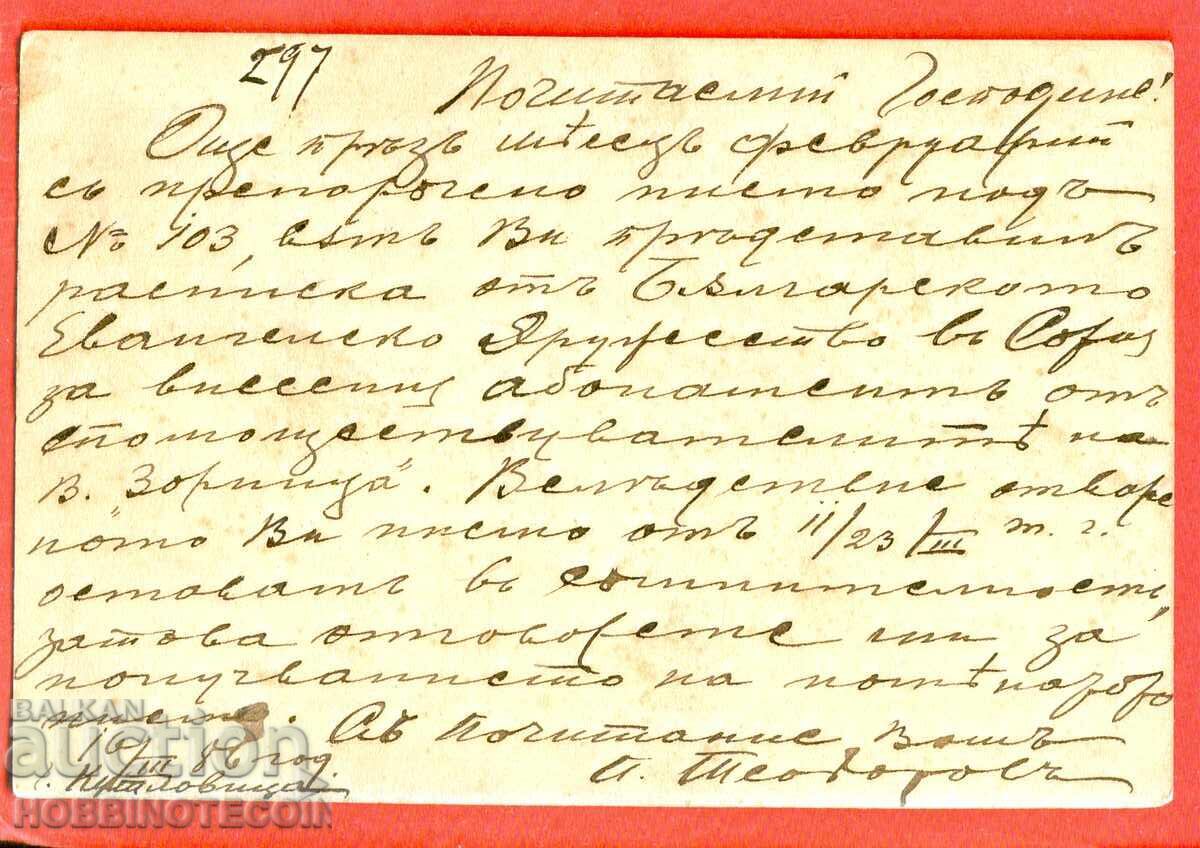 297
Почитаемий Господине!
Още прѣзъ мѣсецъ февруарий
съ препоръчено писмо подъ
№ 103, вѣтъ Ви прѣдставихъ
расписка отъ Българското
Евангелско Дружество въ София
за внесений абонаментъ отъ
спомоществувателитѣ на
в. „Зорница“. Вслѣдствие отворе
ното Ви писмо отъ 11/23/III т. г.
оставамъ въ съмнителность,
затова отговорете ми за
получванието на
писмо.
Съ Почитание Вашъ
16/III 86 год.
П. Теодоровъ
г. Кутловица
BALKAN
auction
HOBBINOTECOIN